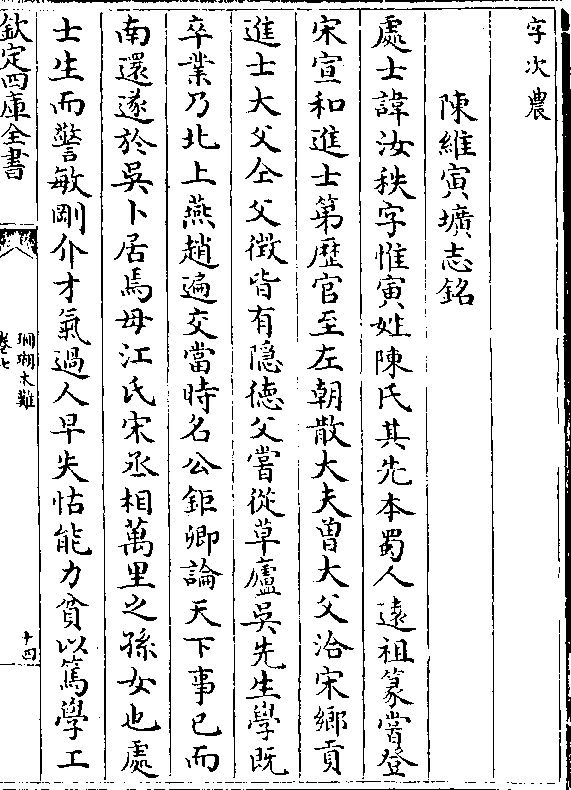 字次農
陳維寅壙志銘
處士諱汝秩字惟寅姓陳氏其先本蜀人遠祖篆嘗登
宋宣和進士第歴官至左朝散大夫曽大父洽宋鄉貢
進士大父仝父徴皆有隠徳父嘗從草廬吳先生學既
卒業乃北上燕趙遍交當時名公鉅卿論天下事已而
南還遂於吳卜居焉母江氏宋丞相萬里之孫女也處
士生而警敏剛介才氣過人早失怙能力貧以篤學工
欽定四庫全書
珊瑚木難
卷七
十四